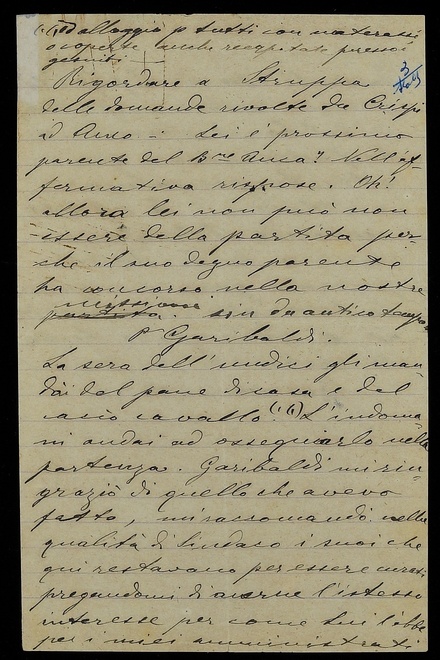 (1) ed alloggio p tutti con materassi
o coperte anche recapitato presso i
gesuiti
3
Rigordare a Struppa
delle domande rivolte da Crispi
ad Anso - Lei è prossimo
parente del Bne Anca? Nell'af-
fermativa rispose. Oh!
allora lei non può non
essere della partita per-
chè il suo degno parente
ha concorso nella nostre
missioni
partita. sin da antico tempo
P Garibaldi.
La sera dell'undici gli man-
dai del pane di casa e del
cacio cavallo (1) L'indoma-
ni andai ad osseguiarlo nella
partenza. Garibaldi mi rin-
graziò di quello che avevo
fatto, mi raccomandò nella
qualità di Sindaco i suoi che
qui restavano per essere curati
pregandomi di averne l'istesso
interesse per come lui l'ebbe
per i miei amministrati